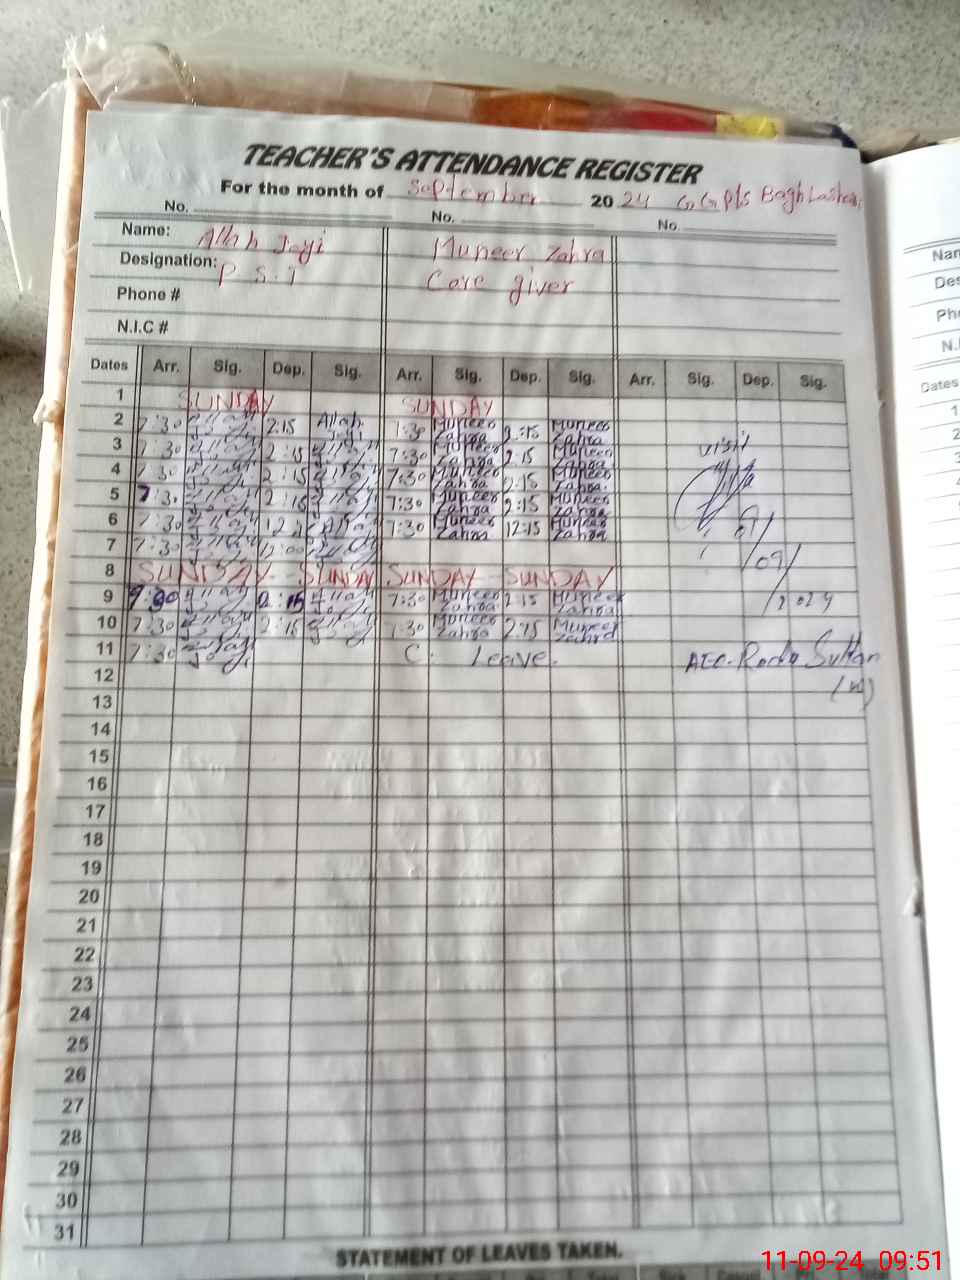 TEACHER'S ATTENDANCE REGISTER
For the month of September 2024 G.G.P/S Bagh Lashari
No. No. No.
Name: Allah Jayi Muneer Zahra
Designation: P.S.T Care giver
Phone #
N.I.C #
Dates Arr. Sig. Dep. Sig. Arr. Sig. Dep. Sig. Arr. Sig. Dep. Sig.
1 SUNDAY SUNDAY
2 7:30 2:15 Allah Jayi 7:30 Muneer Zahra 2:15 Muneer Zahra
3 7:30 2:15 7:30 Muneer Zahra 2:15 Muneer Zahra visit
4 7:30 2:15 7:30 Muneer Zahra 2:15 Muneer Zahra
5 7:30 2:15 7:30 Muneer Zahra 2:15 Muneer Zahra
6 7:30 7:30 Muneer Zahra 12:15 Muneer Zahra
7 7:30 12:00 /09/
8 SUNDAY SUNDAY SUNDAY SUNDAY
9 7:30 2:15 7:30 Muneer Zahra 2:15 Muneer Zahra 2024
10 7:30 2:15 7:30 Muneer Zahra 2:15 Muneer Zahra
11 7:30 C. Leave. Sultan
12 (W)
13
14
15
16
17
18
19
20
21
22
23
24
25
26
27
28
29
30
31
STATEMENT OF LEAVES TAKEN.
11-09-24 09:51
Dates